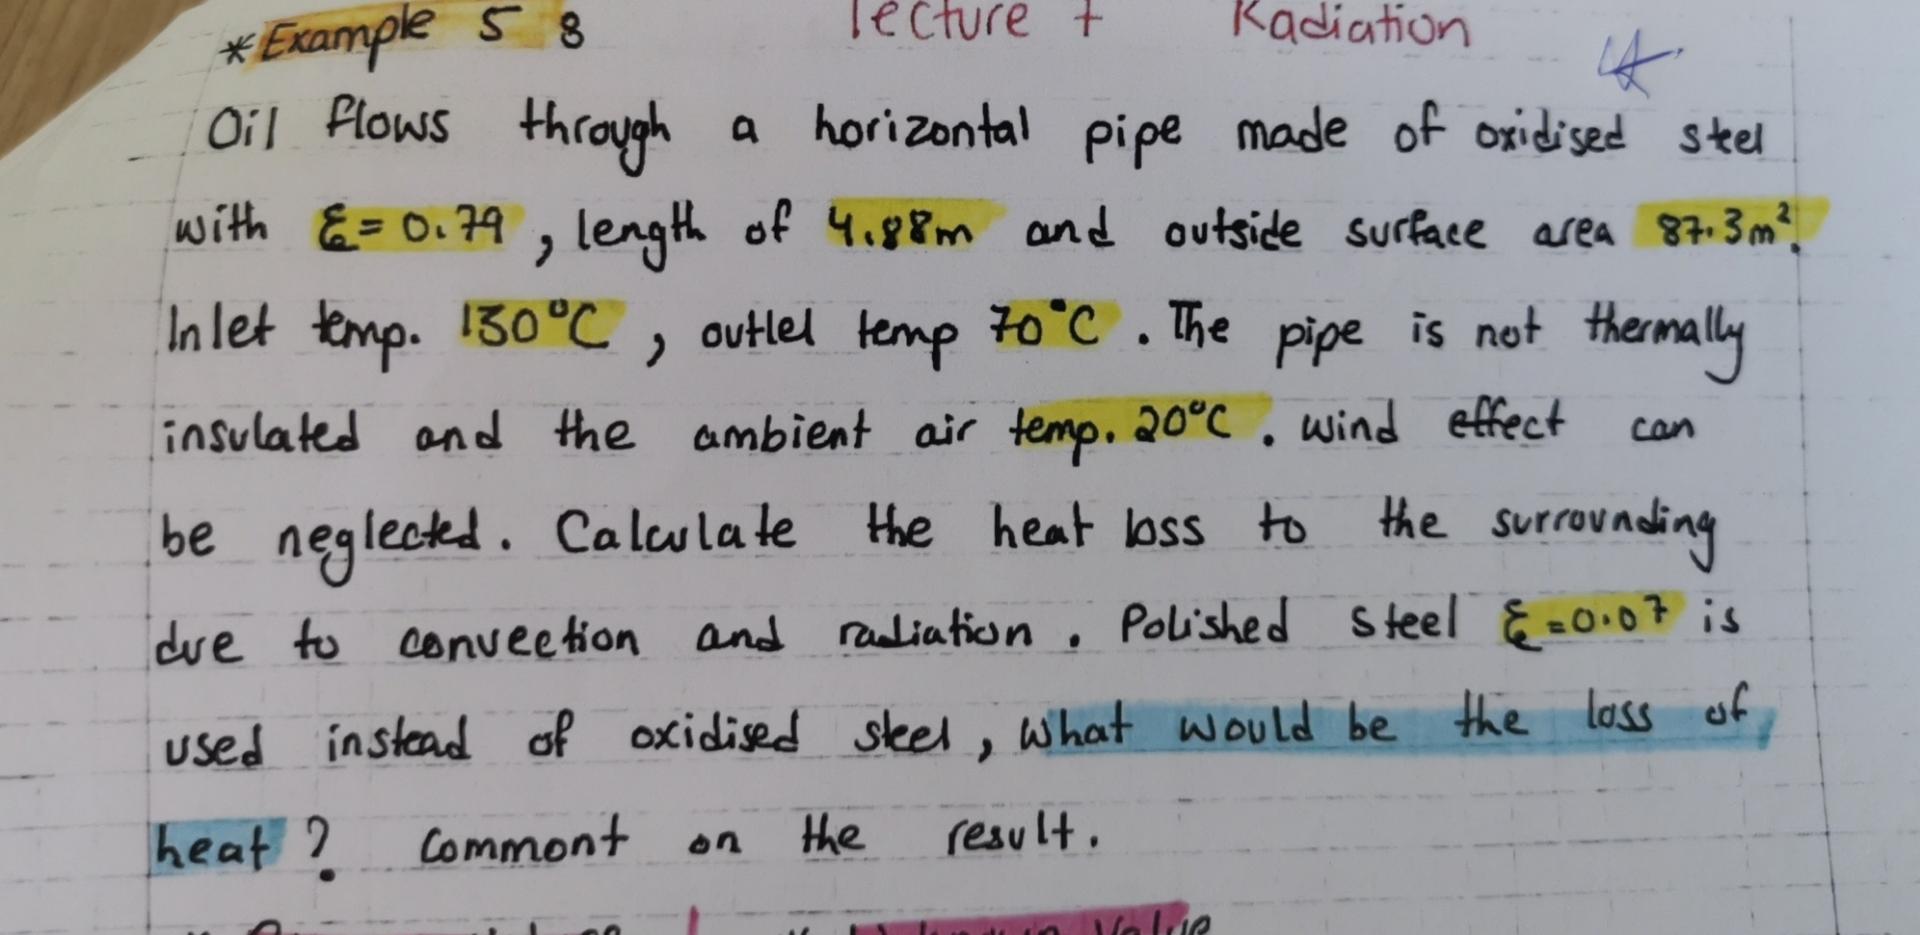 *Example 5 8 lecture 7 Radiation
Oil flows through a horizontal pipe made of oxidised steel
with ε = 0.79, length of 4.88m and outside surface area 87.3m².
Inlet temp. 130°C, outlel temp 70°C. The pipe is not thermally
insulated and the ambient air temp. 20°C. wind effect can
be neglected. Calculate the heat loss to the surrounding
due to convection and radiation. Polished steel ε=0.07 is
used instead of oxidised steel, what would be the loss of
heat? Commont on the result.
Value